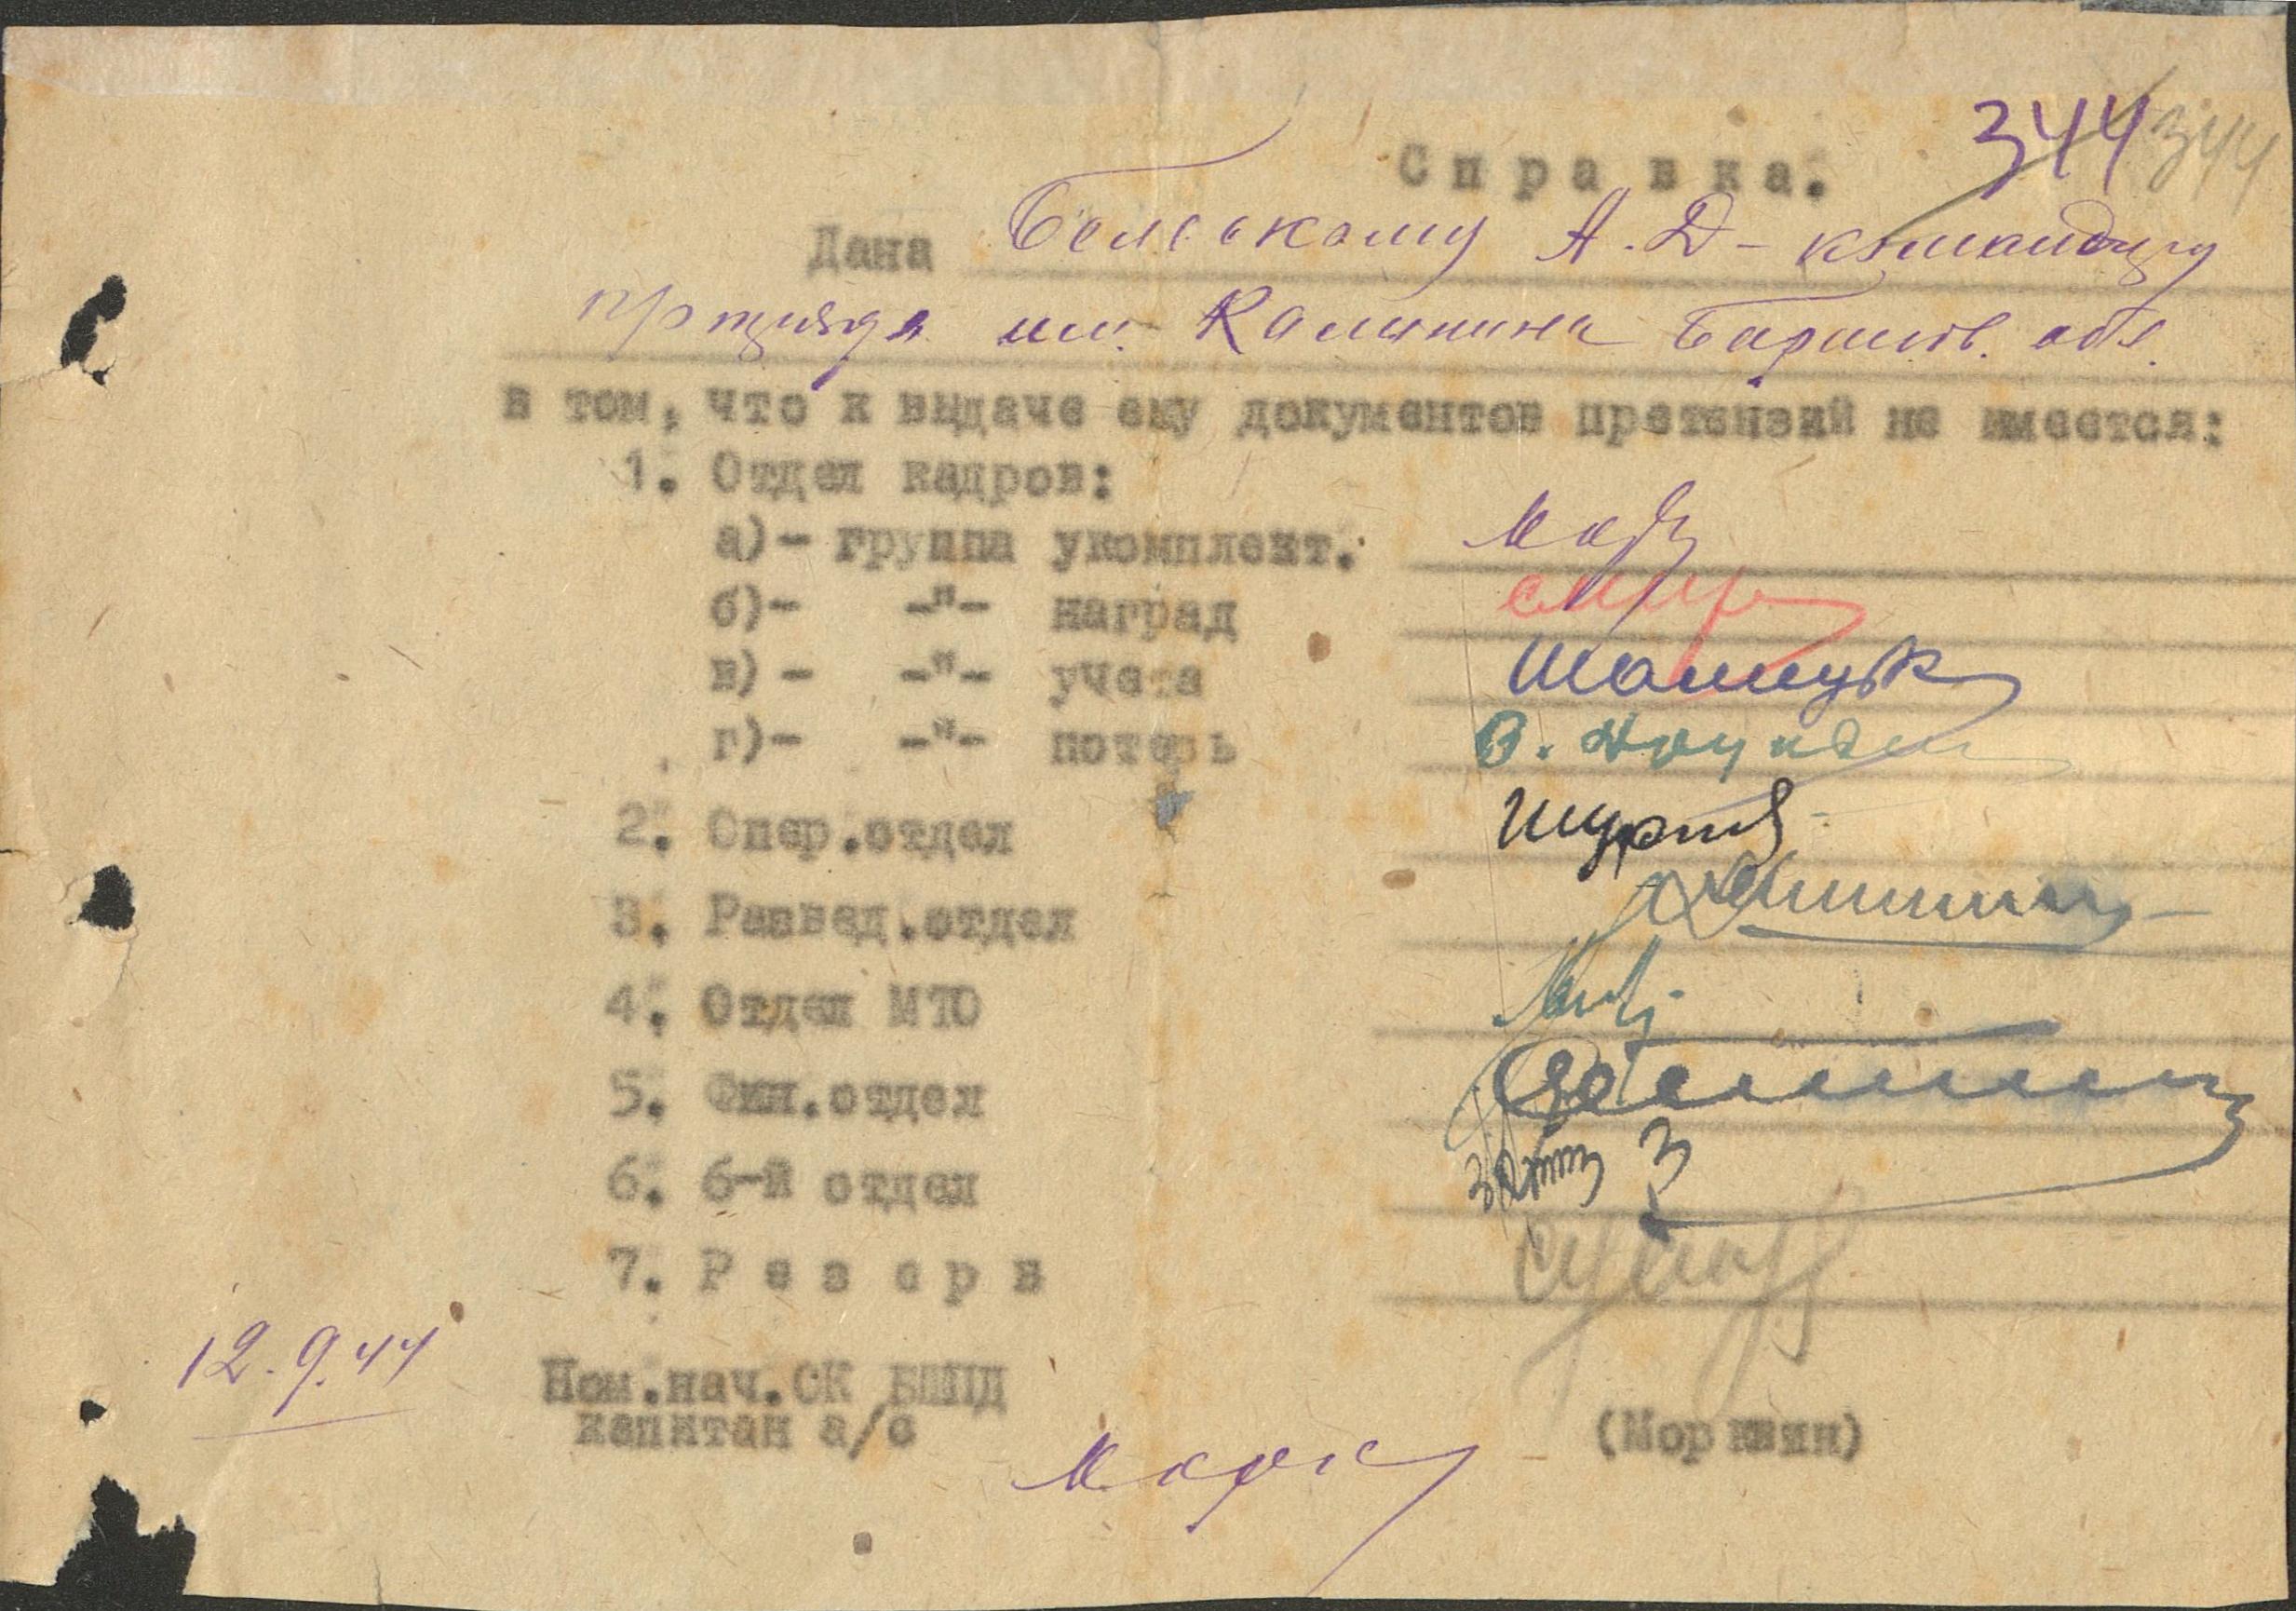 344 344
Справка.
Дана Бельскому А.Д - командиру
п/отряда им. Калинина Баранов. обл.
в том, что к выдаче ему документов претензий не имеется:
1. Отдел кадров:
а)- группа укомплект.
б)- -"- наград
в)- -"- учета
г)- -"- потерь
2. Опер.отдел
3. Развед.отдел
4. Отдел МТО
5. Фин.отдел
6. 6-й отдел
7. Резерв
12.9.44
Пом.нач.ОК БШПД
капитан а/с
(Моркин)